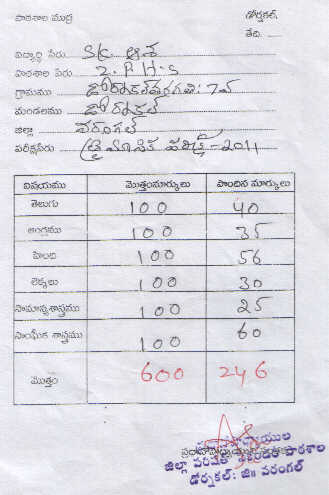 పాఠశాల ముద్ర
డోర్నకల్.
తేది. ......
విద్యార్థి పేరు SK. ఆశ
పాఠశాల పేరు Z.P.H.S
గ్రామము డోర్నకల్ తరగతి: 7వ
మండలము డోర్నకల్
జిల్లా వరంగల్
పరీక్షపేరు త్రైమాసిక పరీక్ష-2011
విషయము మొత్తంమార్కులు పొందిన మార్కులు
తెలుగు 100 40
ఆంగ్లము 100 35
హింది 100 56
లెక్కలు 100 30
సామాన్యశాస్త్రము 100 25
సాంఘీక శాస్త్రము 100 60
మొత్తం 600 246
జిల్లా పరిషత్ సెకండరీ పాఠశాల
డోర్నకల్: జిః వరంగల్